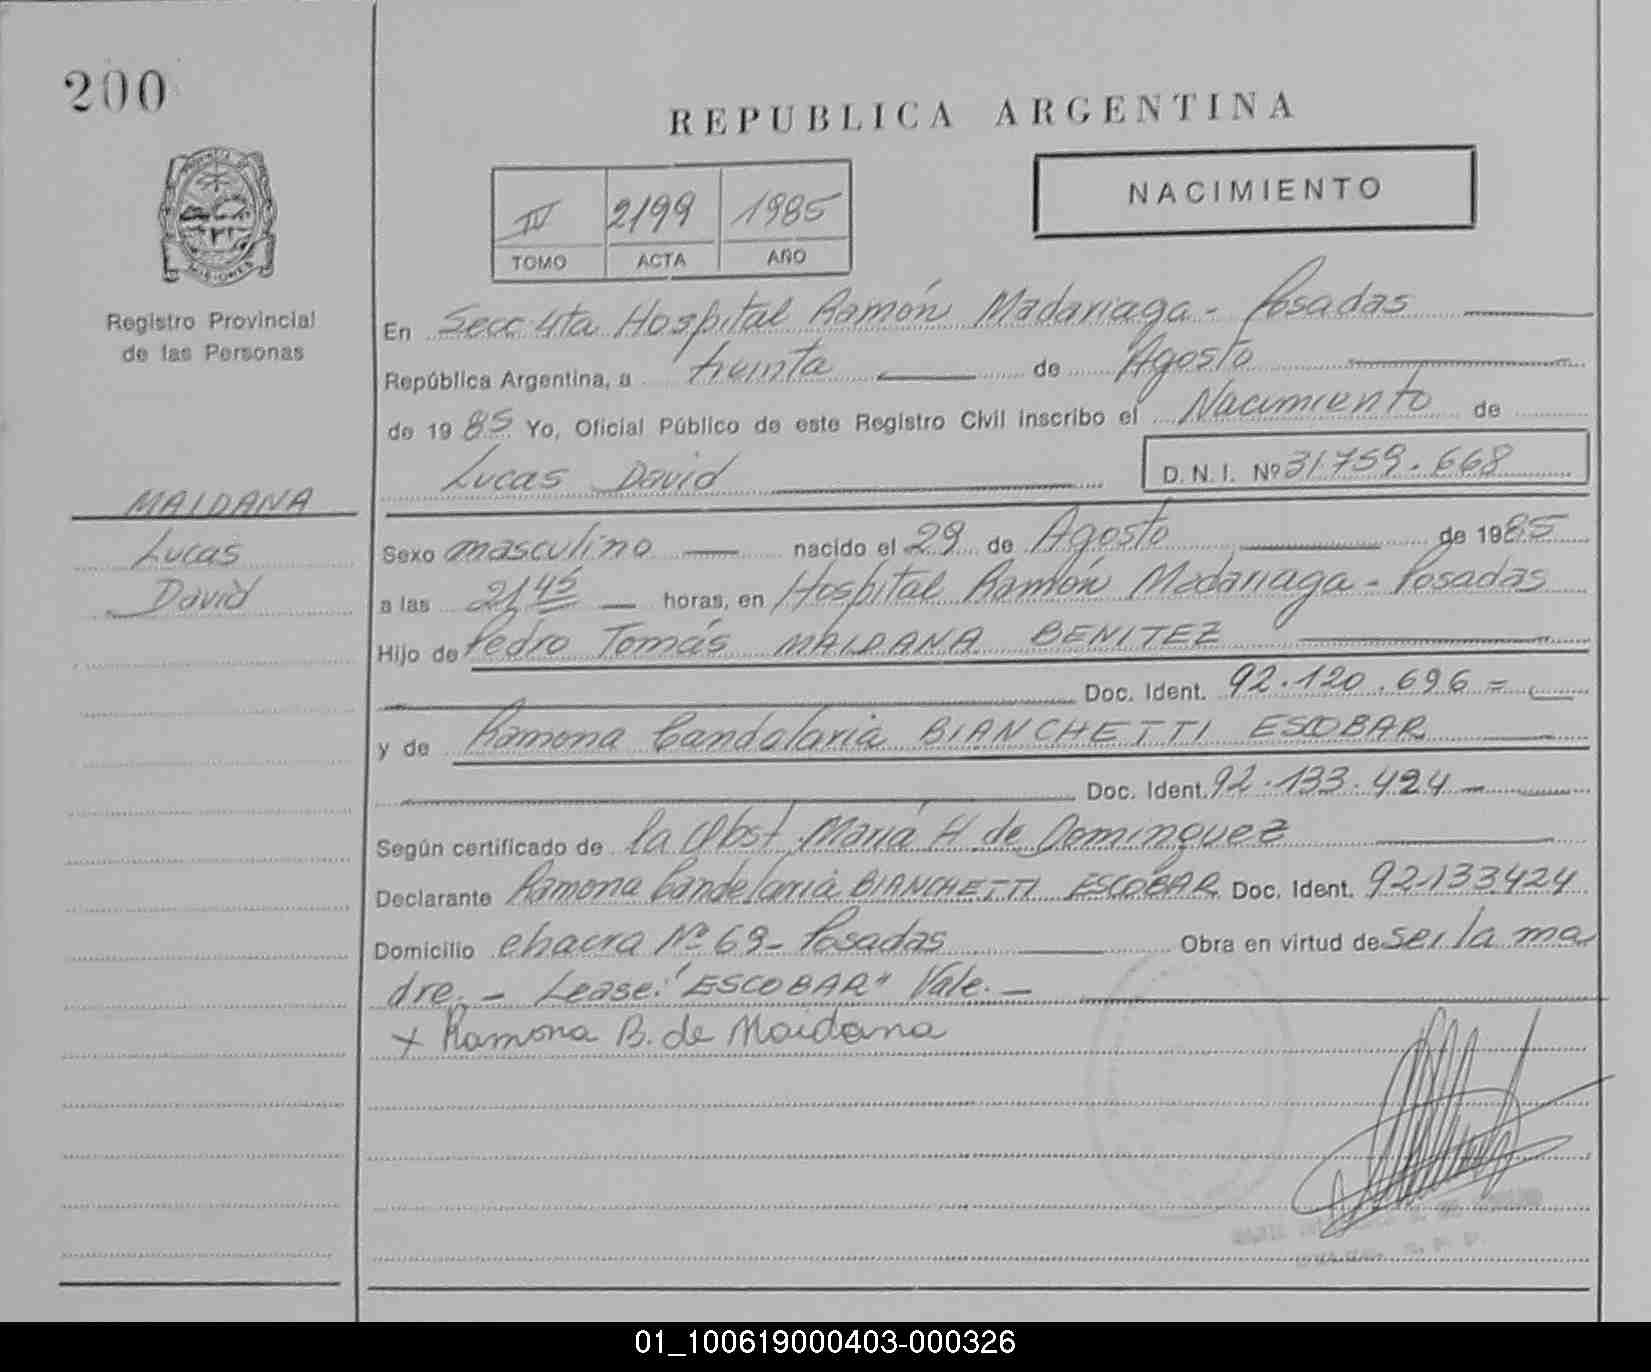 200
REPUBLICA ARGENTINA
NACIMIENTO
IV 2199 1985
TOMO ACTA AÑO
PROVINCIA DE MISIONES
Registro Provincial
de las Personas
En Secc 4ta Hospital Ramón Madariaga - Posadas
República Argentina, a treinta de Agosto
de 1985 Yo, Oficial Público de este Registro Civil inscribo el Nacimiento de
Lucas David D. N. I. Nº 31759.668
MALDANA
Lucas
David
Sexo masculino nacido el 29 de Agosto de 1985
a las 21,45 horas, en Hospital Ramón Madariaga - Posadas
Hijo de Pedro Tomás MAIDANA BENITEZ
Doc. Ident. 92.120.696 =
y de Ramona Candalaria BIANCHETTI ESCOBAR
Doc. Ident. 92.133.424
Según certificado de la Obst Maria H de Dominguez
Declarante Ramona Candelaria BIANCHETTI ESCOBAR Doc. Ident. 92.133424
Domicilio chacra Nº 69 - Posadas Obra en virtud de ser la ma
dre. - Lease: "ESCOBAR" Vale. -
+ Ramona B. de Maidana
01_100619000403-000326